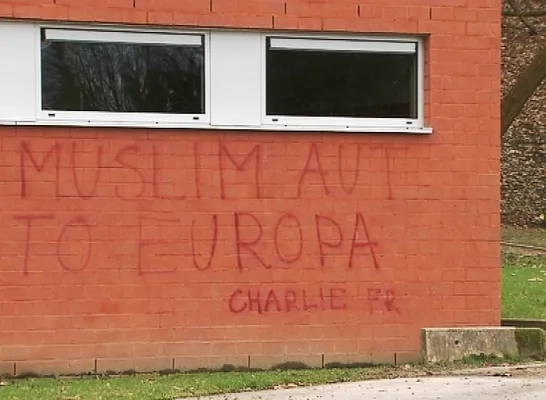 MUSLIM AUT
TO EUROPA
CHARLIE FR